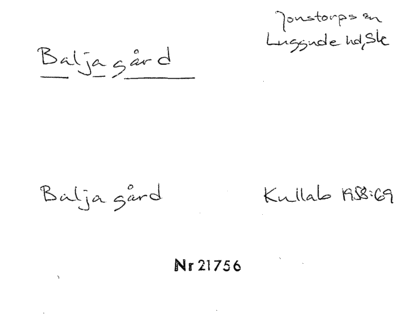 Jonstorps sn
Luggude hd, Sk
Balja gård
Balja gård
Kullab 1958:69
Nr 21756